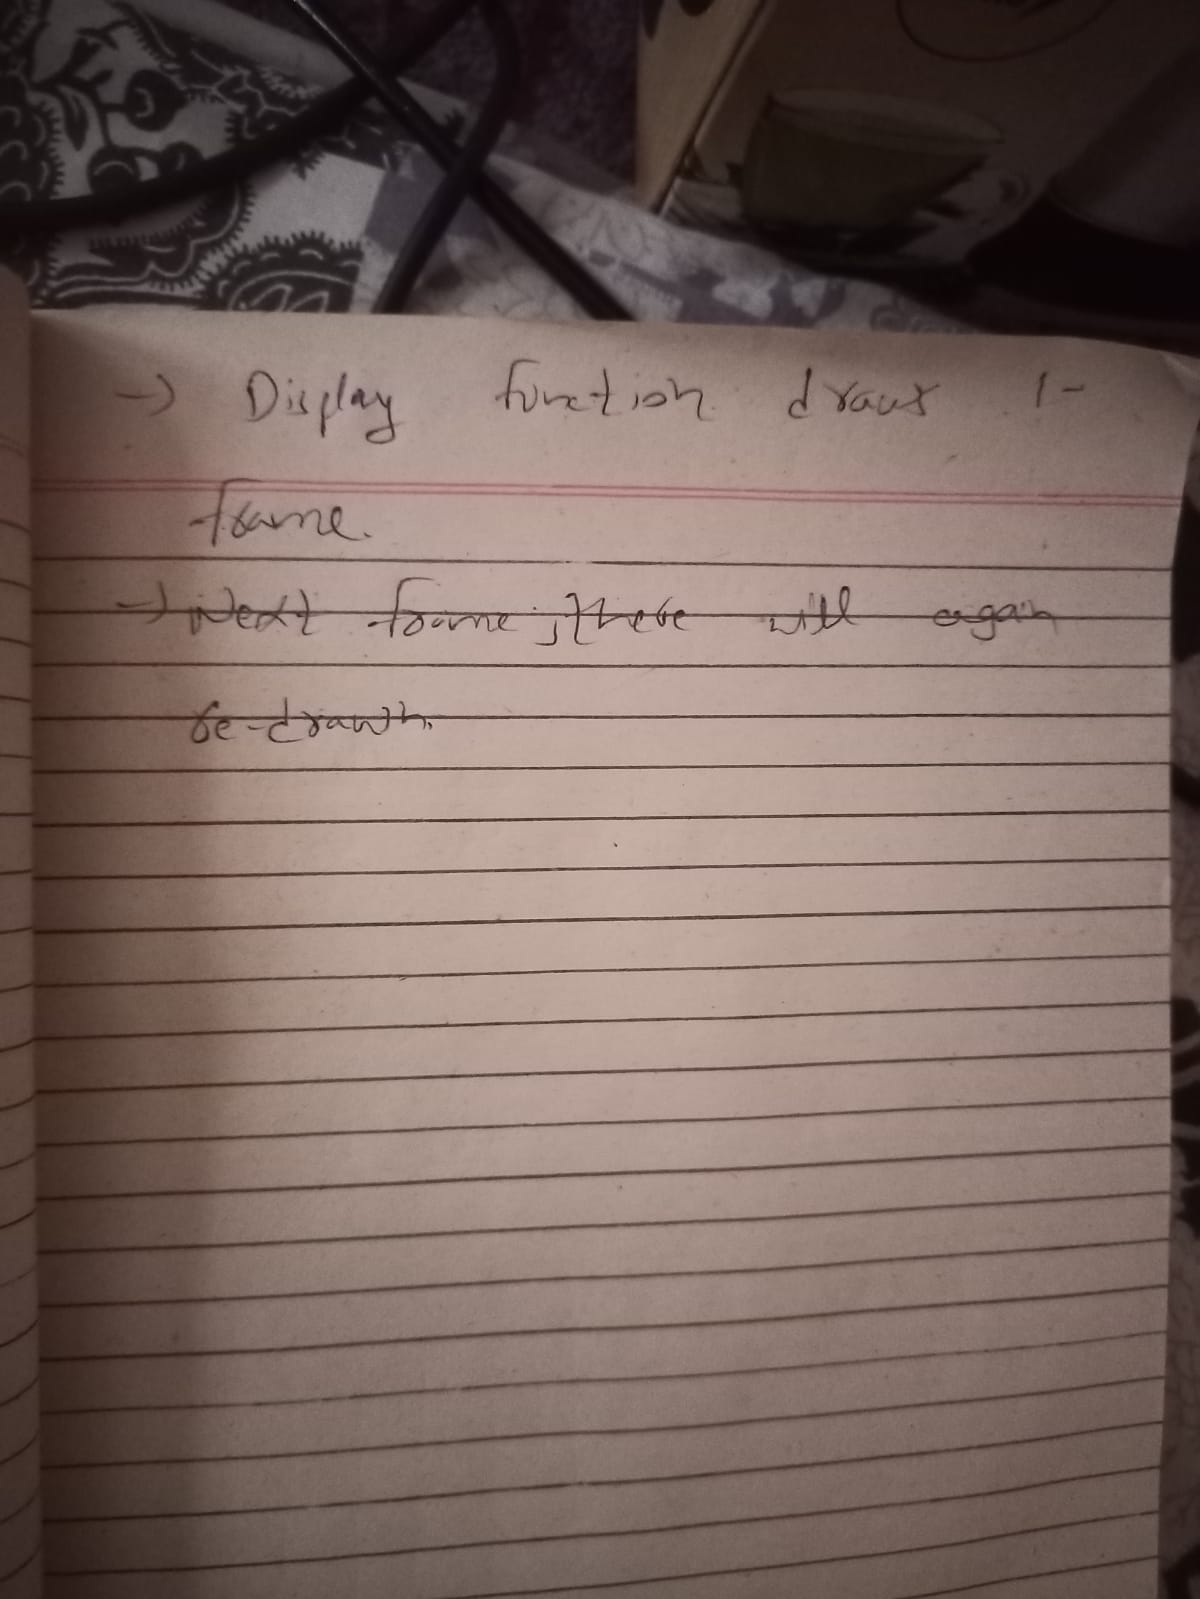 → Display function draws 1-
frame.
→ Next frame, there will again
re-drawn.